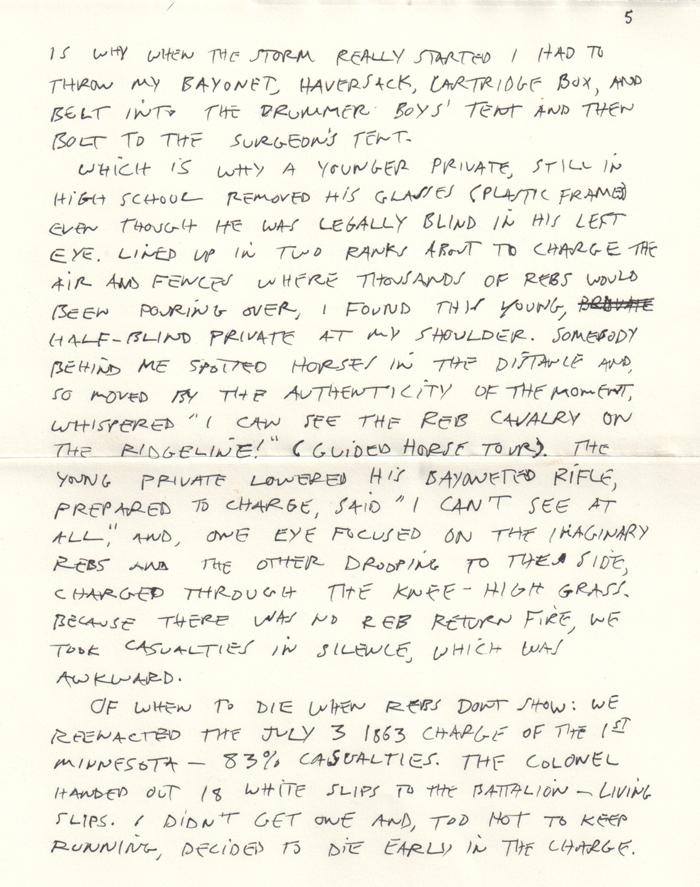 5
IS WHY WHEN THE STORM REALLY STARTED I HAD TO
THROW MY BAYONET, HAVERSACK, CARTRIDGE BOX, AND
BELT INTO THE DRUMMER BOYS' TENT AND THEN
BOLT TO THE SURGEON'S TENT.
WHICH IS WHY A YOUNGER PRIVATE, STILL IN
HIGH SCHOOL REMOVED HIS GLASSES (PLASTIC FRAMES)
EVEN THOUGH HE WAS LEGALLY BLIND IN HIS LEFT
EYE. LINED UP IN TWO RANKS ABOUT TO CHARGE THE
AIR AND FENCES WHERE THOUSANDS OF REBS WOULD
BEEN POURING OVER, I FOUND THIS YOUNG, PRIVATE
HALF-BLIND PRIVATE AT MY SHOULDER. SOMEBODY
BEHIND ME SPOTTED HORSES IN THE DISTANCE AND,
SO MOVED BY THE AUTHENTICITY OF THE MOMENT,
WHISPERED "I CAN SEE THE REB CAVALRY ON
THE RIDGELINE!" (GUIDED HORSE TOUR). THE
YOUNG PRIVATE LOWERED HIS BAYONETED RIFLE,
PREPARED TO CHARGE, SAID "I CAN'T SEE AT
ALL," AND, ONE EYE FOCUSED ON THE IMAGINARY
REBS AND THE OTHER DROOPING TO THE SIDE,
CHARGED THROUGH THE KNEE-HIGH GRASS.
BECAUSE THERE WAS NO REB RETURN FIRE, WE
TOOK CASUALTIES IN SILENCE, WHICH WAS
AWKWARD.
OF WHEN TO DIE WHEN REBS DON'T SHOW: WE
REENACTED THE JULY 3 1863 CHARGE OF THE 1ST
MINNESOTA — 83% CASUALTIES. THE COLONEL
HANDED OUT 18 WHITE SLIPS TO THE BATTALION — LIVING
SLIPS. I DIDN'T GET ONE AND, TOO HOT TO KEEP
RUNNING, DECIDED TO DIE EARLY IN THE CHARGE.